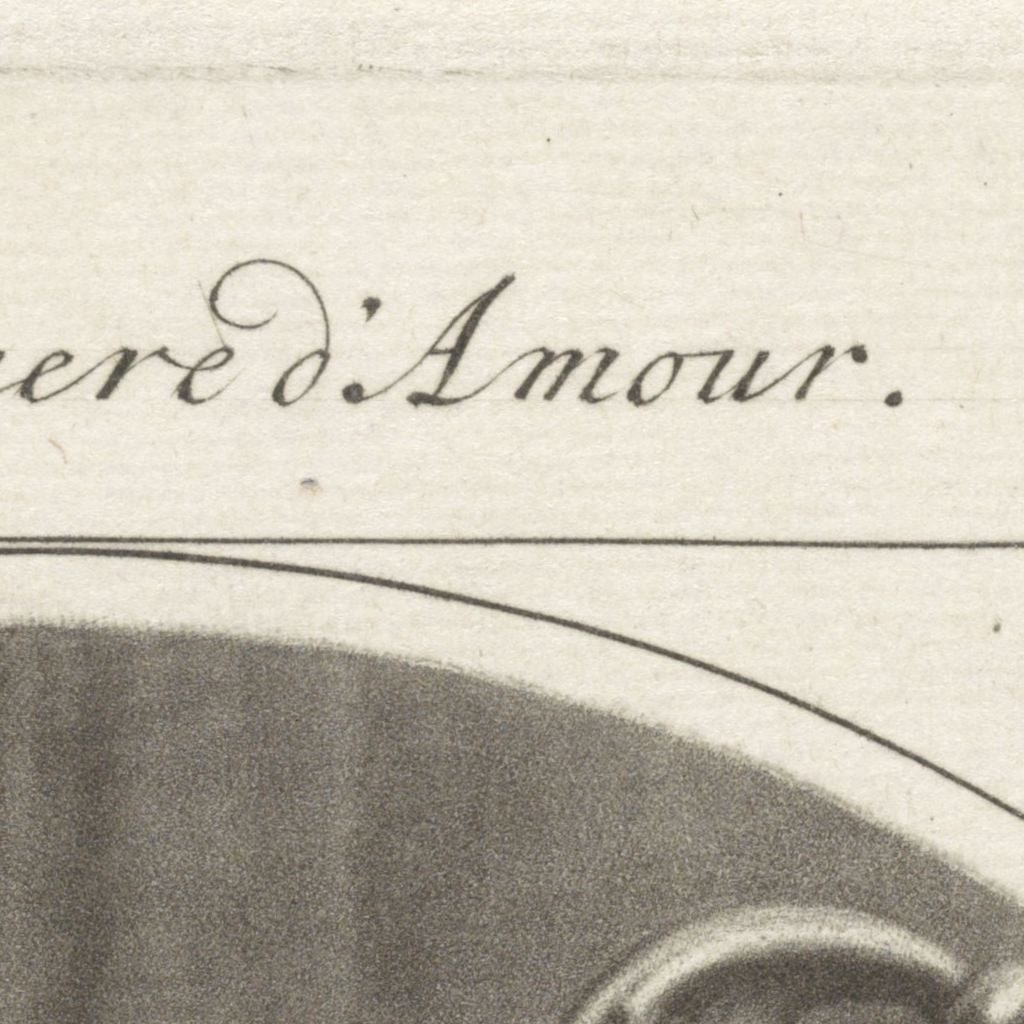 ere d'Amour.